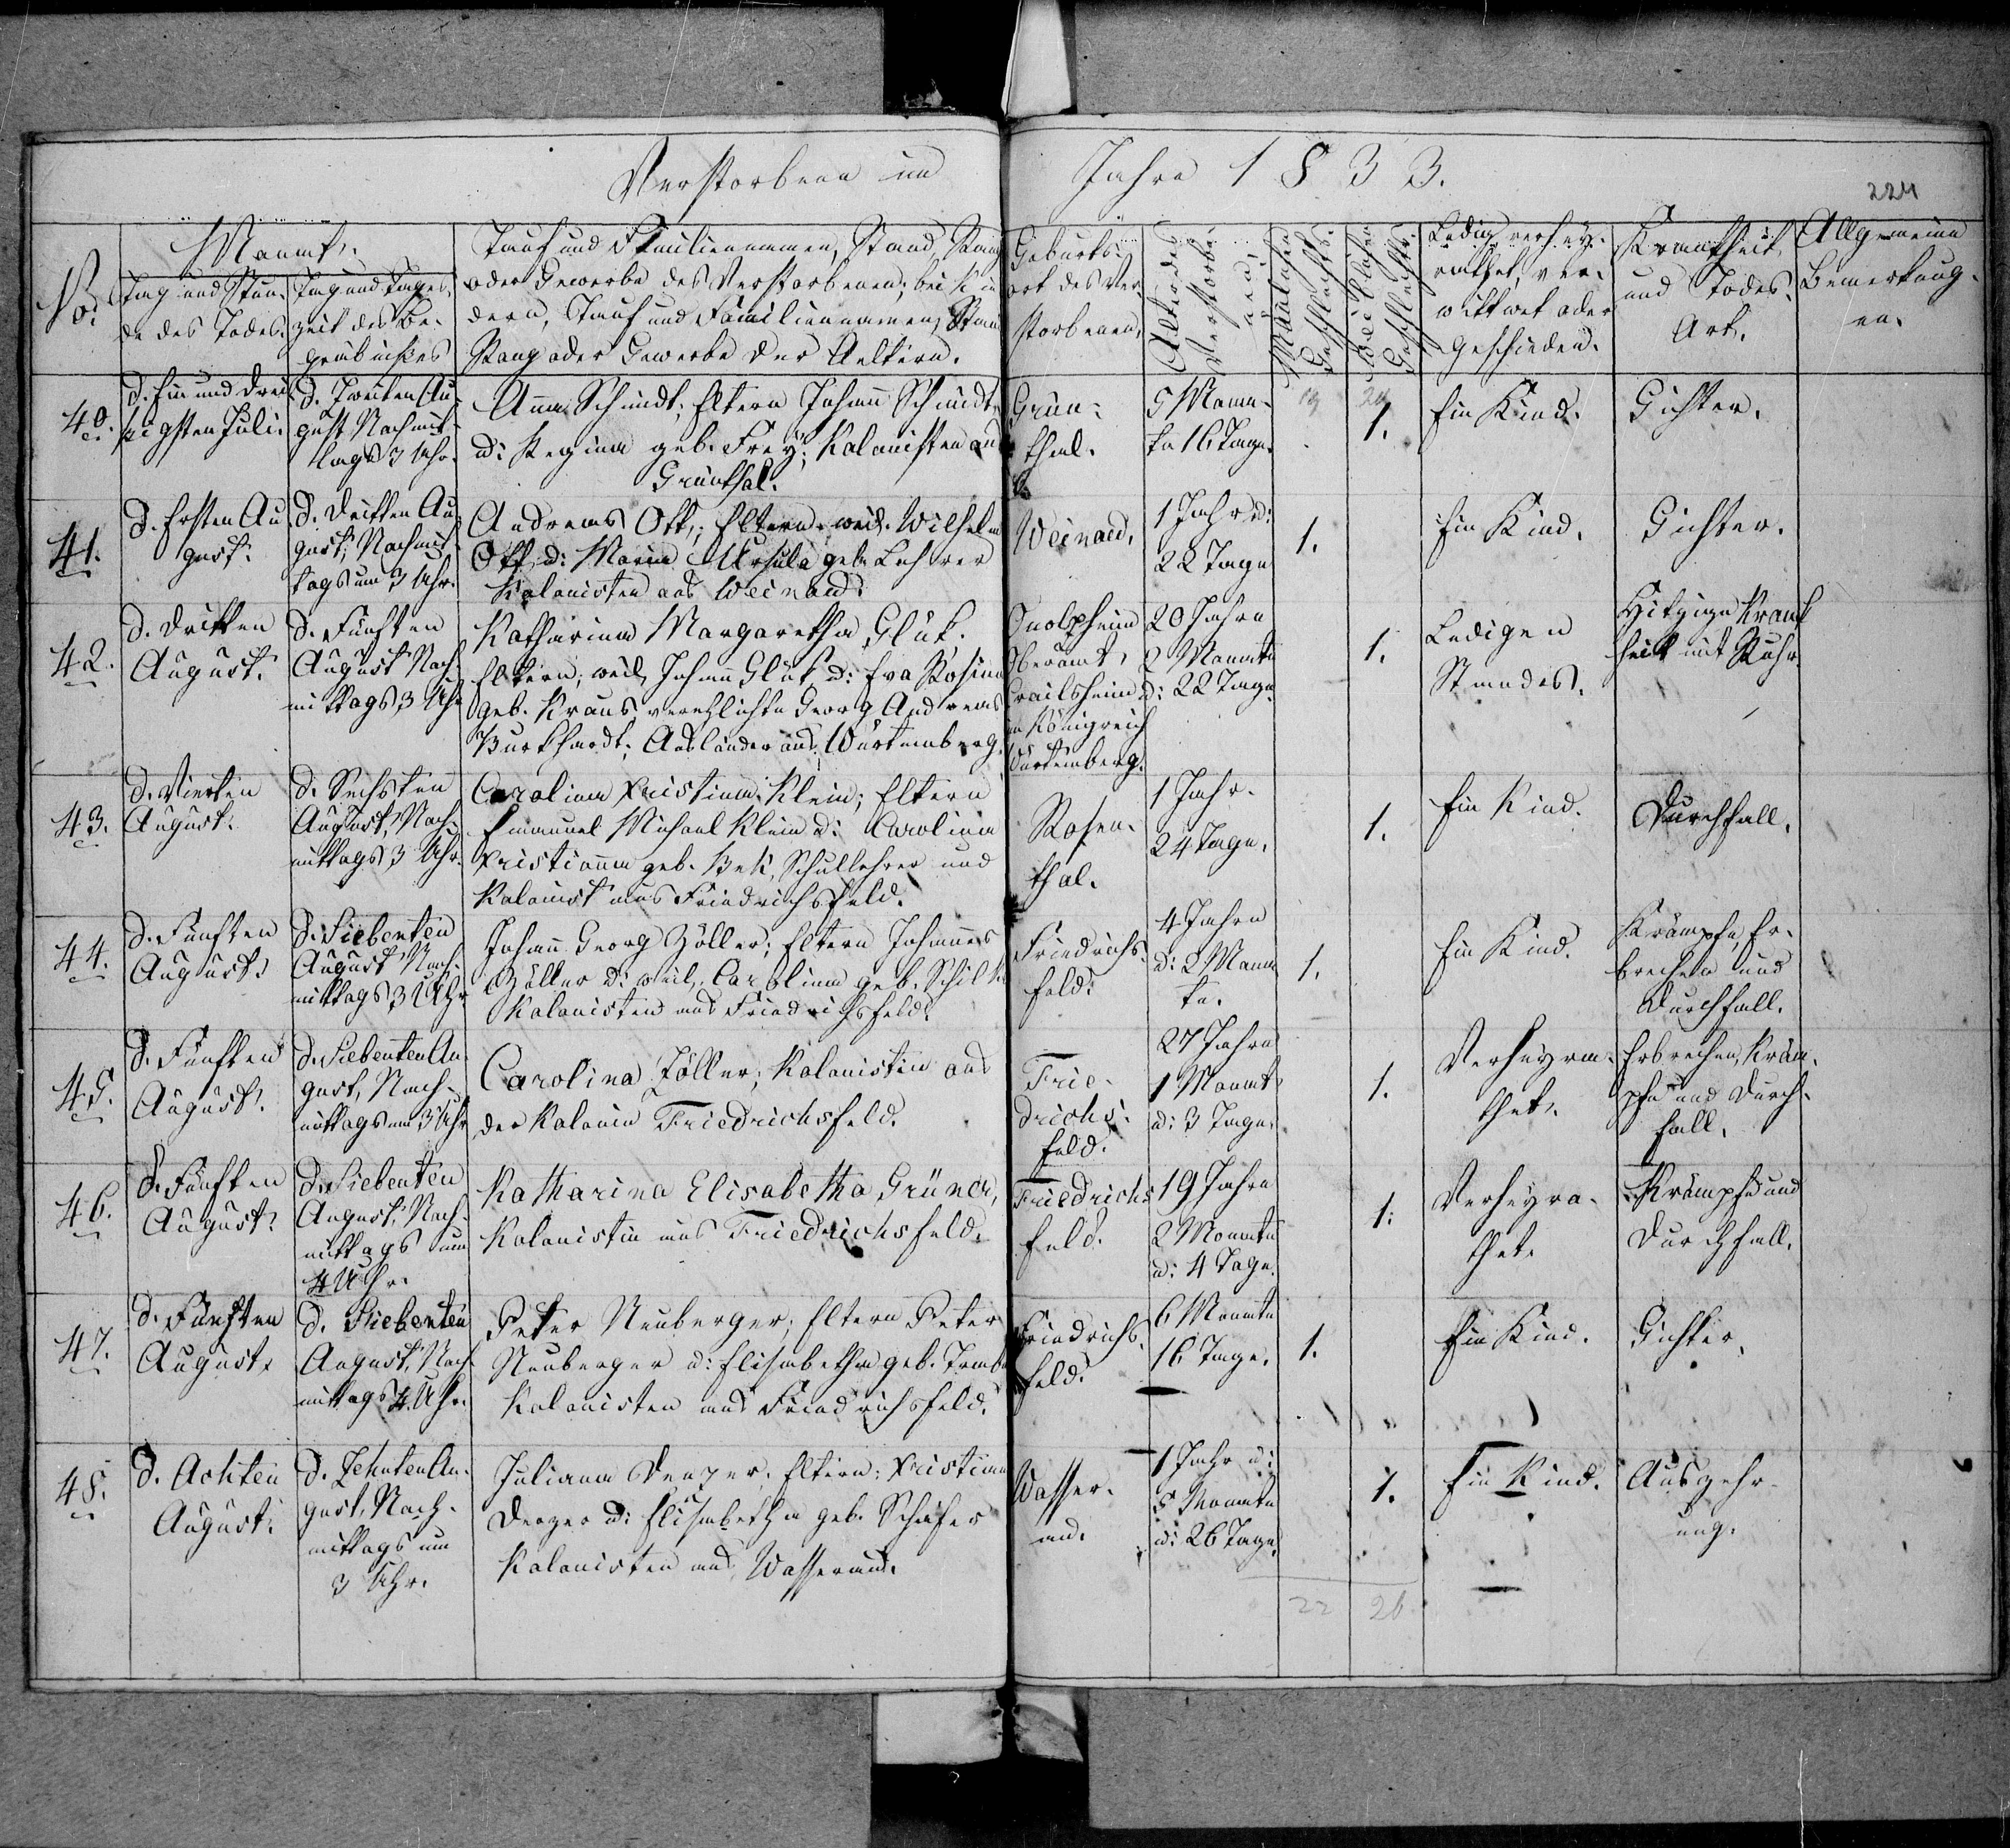 Verstorbene im Jahre 1833.
224
No.
Monat.
Tag und Stun-
de des Todes.
Tag und Tages-
zeit des Be-
gräbnißes
Tauf und Familiennamen, Stand, Rang
oder Gewerbe des Verstorbenen; bei Kin
dern, Tauf und Familiennamen, Stand
Rang oder Gewerbe der Aeltern.
Geburts-
ort des Ver-
storbenen.
Alter des
Verstorbe-
nen.
Männlichen
Geschlechts.
Weiblichen
Geschlechts.
Ledig, verhey-
rathet, ver-
wittwet oder
geschieden.
Krankheit
und Todes-
Art.
Allgemeine
Bemerkung-
en.
40.
d. Ein und drei
ßigsten Juli.
d. Zweiten Au-
gust Nachmit-
tags 3 Uhr.
Anna Schmidt; Eltern Johann Schmidt
u: Regina geb. Frey; Kolonisten aus
Grünthal.
Grün-
thal.
5 Mona-
te 16 Tage.
19
24
1.
Ein Kind.
Gichter.
41.
d. Ersten Au
gust.
d. Dritten Au-
gust, Nachmit-
tags um 3 Uhr.
Andreas Ott; Eltern weil. Wilhelm
Ott u: Maria Ursula geb. Lehrer
Kolonisten aus Weinau.
Weinau.
1 Jahr u:
22 Tage
1.
Ein Kind.
Gichter.
42.
d. Dritten
August.
d. Fünften
August Nach-
mittags 3 Uhr
Katharina Margaretha Glük.
Eltern, weil. Johann Glük u: Eva Rosina
geb. Kraus, verehlichte Georg Andreas
Burkhardt; Ausländer aus Würtemberg.
Onolzheim
Oberamt
Crailsheim
im Königreich
Würtemberg.
20 Jahre
2 Monate
u: 22 Tage.
1.
Ledigen
Standes.
Hitzige Krank
heit mit Ruhr
43.
d. Vierten
August.
d. Sechsten
August, Nach-
mittags 3 Uhr.
Carolina Kristina Klein; Eltern
Emanuel Michael Klein u: Carolina
Kristianna geb. Bek, Schullehrer und
Kolonist aus Friedrichsfeld.
Rosen-
thal.
1 Jahr.
24 Tage.
1.
Ein Kind.
Durchfall.
44.
d. Fünften
August.
d. Siebenten
August Nach-
mittags 3 Uhr
Johann Georg Zöller; Eltern Johannes
Zöller u: weil. Carolina geb. Schilk
Kolonisten aus Friedrichsfeld.
Friedrichs-
feld.
4 Jahre
u: 2 Mona
te.
1.
Ein Kind.
Krämpfe, Er-
brechen und
Durchfall.
45.
d. Fünften
August.
d. Siebenten Au-
gust, Nach-
mittags um 3 Uhr
Carolina Zöller; Kolonistin aus
der Kolonie Friedrichsfeld.
Frie-
drichs-
feld.
27 Jahre
1 Monat
u: 3 Tage.
1.
Verheyra-
thet.
Erbrechen, Kräm-
pfe und Durch-
fall.
46.
d. Fünften
August.
d. Siebenten
August, Nach-
mittags um
4 Uhr.
Katharina Elisabetha Grüner,
Kolonistin aus Friedrichsfeld.
Friedrichs
feld.
19 Jahre
2 Monate
u: 4 Tage.
1.
Verheyra-
thet.
Krämpfe und
Durchfall.
47.
d. Fünften
August.
d. Siebenten
August, Nach-
mittags 4 Uhr.
Peter Neuberger; Eltern Peter
Neuberger u: Elisabetha geb.
Kolonisten aus Friedrichsfeld.
Friedrichs-
feld.
6 Monate
16 Tage.
1.
Ein Kind.
Gichter.
48.
d. Achten
August.
d. Zehnten Au-
gust, Nach-
mittags um
3 Uhr.
Juliana Denzer. Eltern: Kristian
Denzer u: Elisabetha geb. Schäfer
Kolonisten aus Wasserau.
Wasser-
au.
1 Jahr u:
5 Monate
u: 26 Tage.
1.
Ein Kind.
Auszehr-
ung.
22
26